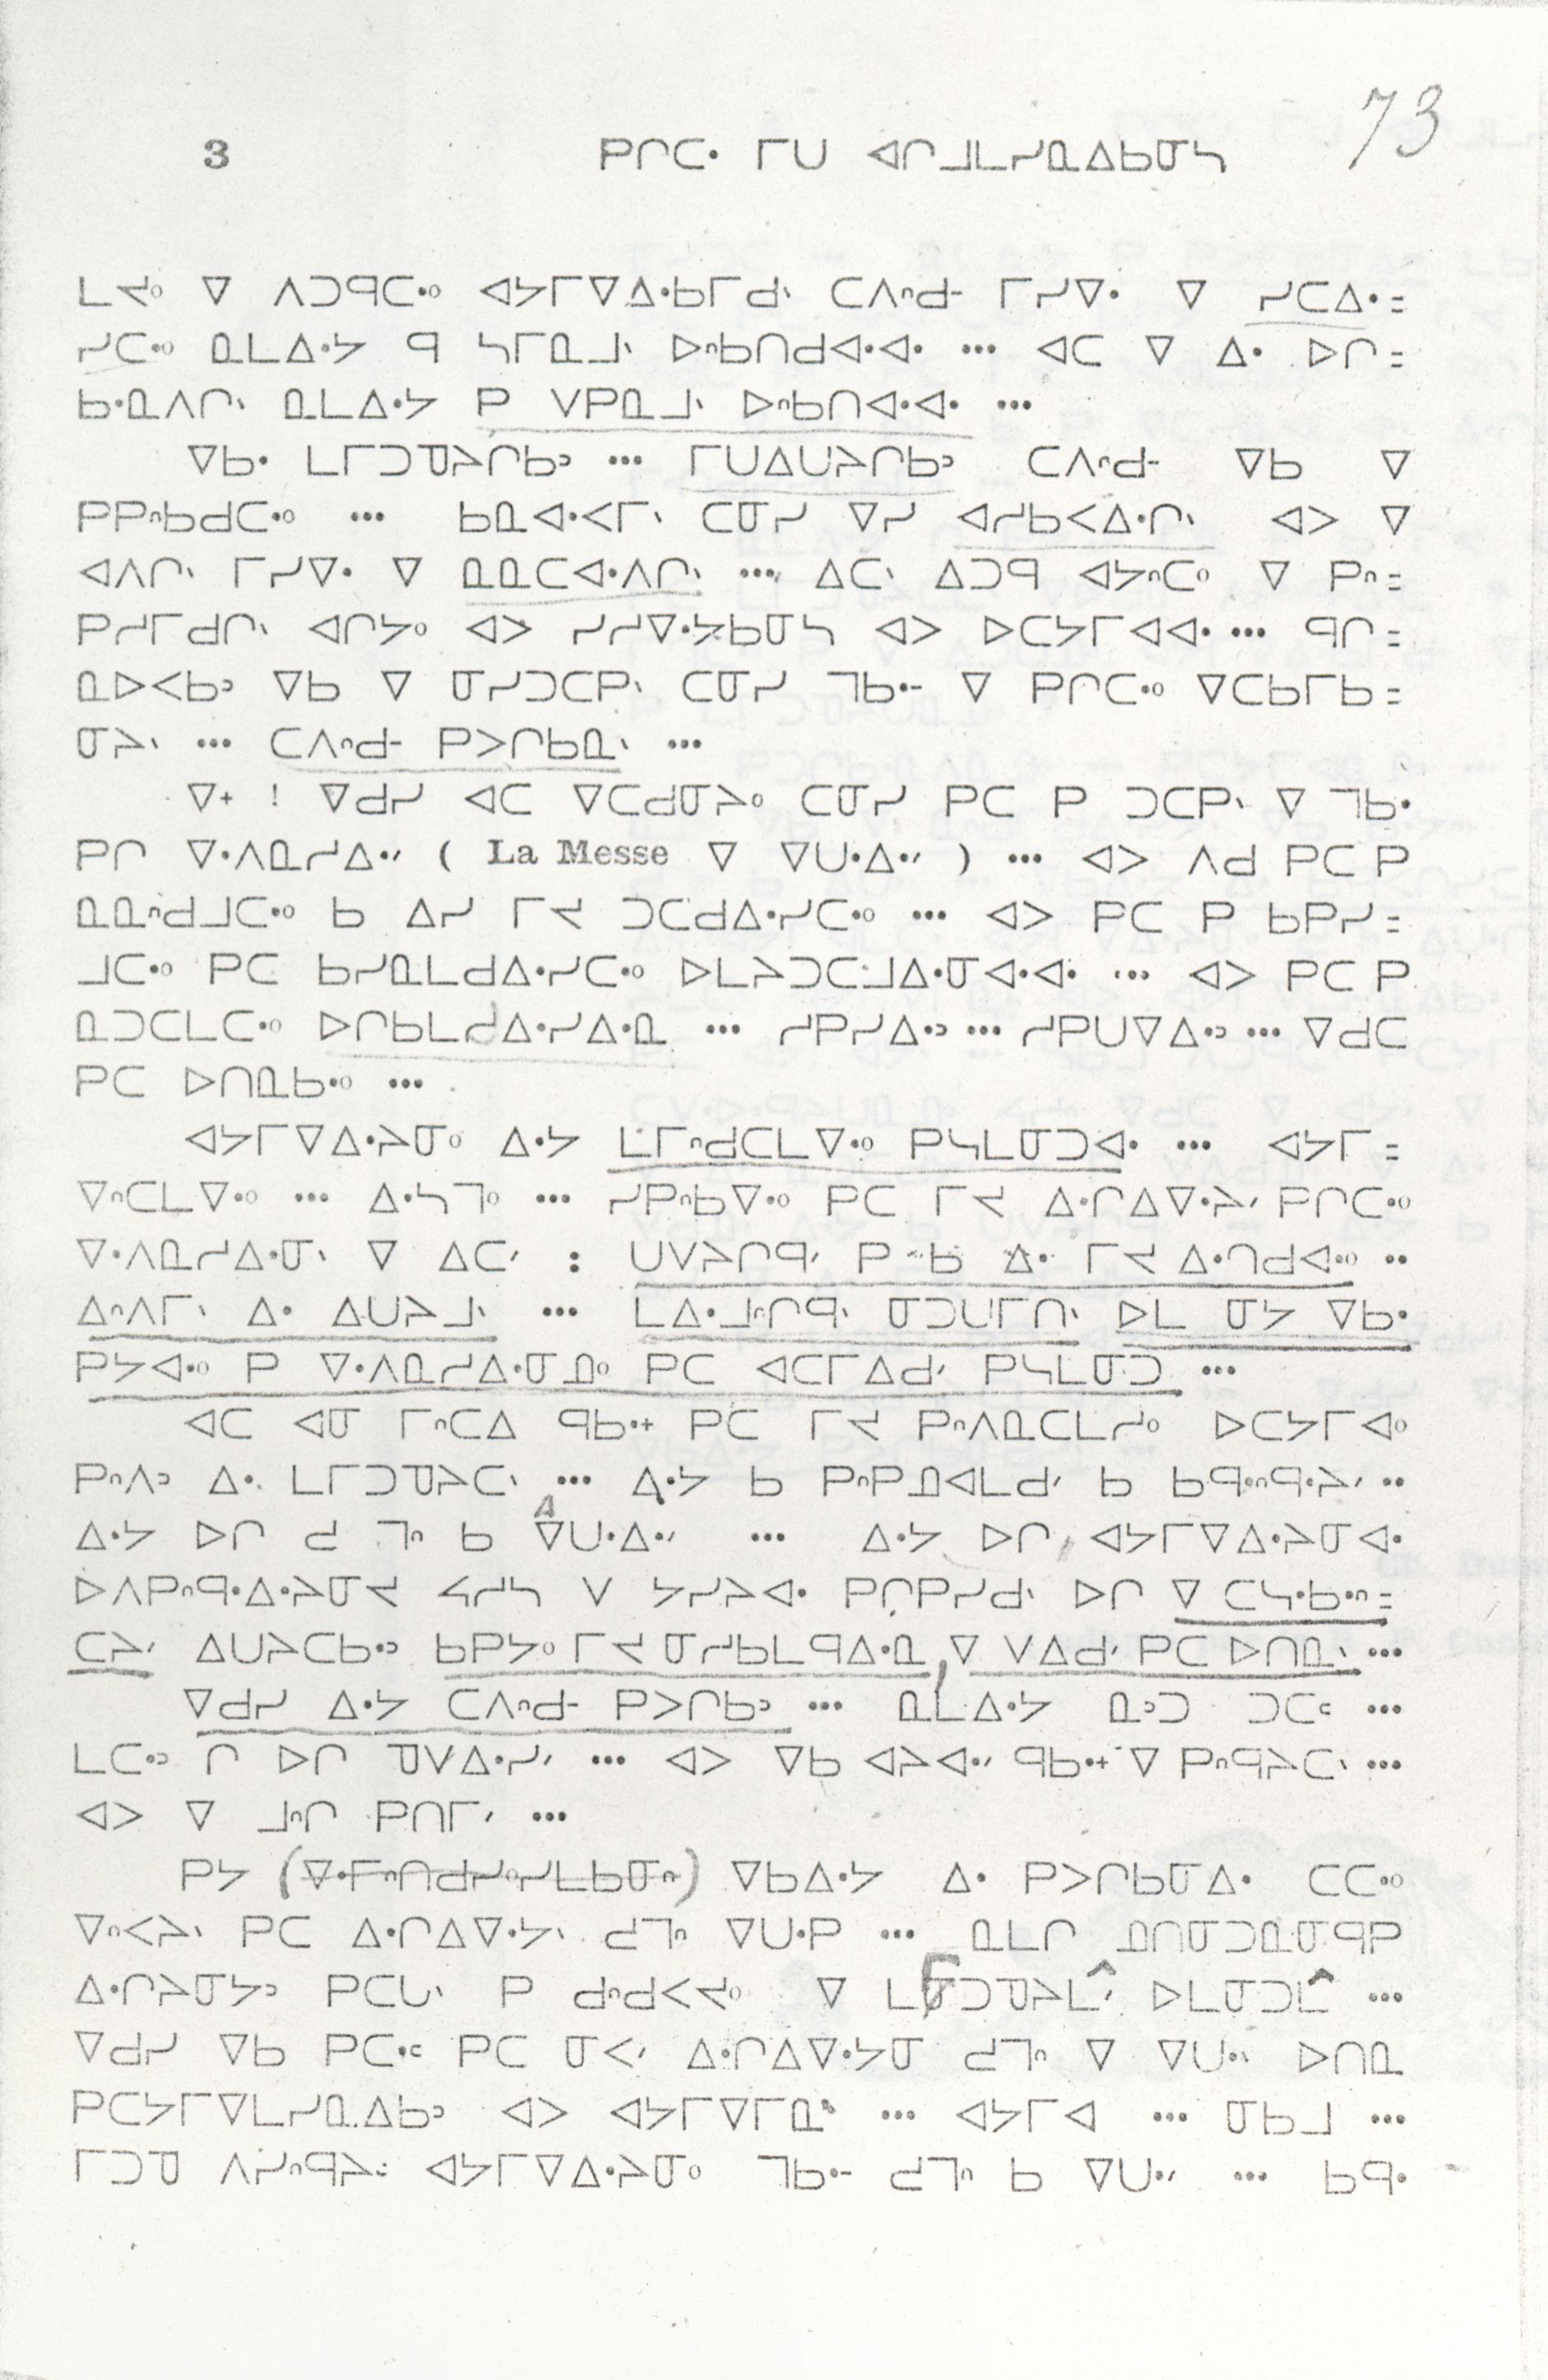 3 ᑭᒋᑕᐧ ᒥᑌ ᐊᒋᒧᒪᓯᓇᐃᑲᓂᓴ 73
ᒪᔫ ᐁ ᐱᑐᑫᑕᐧᐤ ᐊᔭᒥᐁᐃᐧᑲᒥᑯᐠ ᑕᐱᐢᑯᐨ ᒥᓯᐁᐧ ᐁ ᓯᑕᐃᐧ =
ᓯᑕᐧᐤ ᓇᒪᐃᐧᔭ ᑫ ᓴᒥᓇᒧᐠ ᐅᐢᑲᑎᑯᐊᐧᐊᐧ ... ᐊᑕ ᐁ ᐃᐧ ᐅᒋ =
ᑲᐧᓇᐱᒋᐠ ᓇᒪᐃᐧᔭ ᑭ ᐯᑭᓇᒧᐠ ᐅᐢᑲᑎᐊᐧᐊᐧ ...
ᐁᑲᐧ ᒪᒥᑐᓀᔨᒋᑲᐣ ... ᒥᑌᐃᑌᔨᒋᑲᐣ ᑕᐱᐢᑯᐨ ᐁᑲ ᐁ
ᑭᑭᐢᑲᑯᑕᐧᐤ ... ᑲᓇᐊᐧᐸᒥᐠ ᑕᓂᓯ ᐁᓯ ᐊᓯᑲᐸᐃᐧᒋᐠ ᐊᐳ ᐁ
ᐊᐱᒋᐠ ᒥᓯᐁᐧ ᐁ ᓇᓇᑕᐊᐧᐱᒋᐠ ... ᐃᑕᐠ ᐃᑐᑫ ᐊᔭᐢᑕᐤ ᐁ ᑭᐢ =
ᑭᓯᒥᑯᒋᐠ ᐊᒋᔭᐤ ᐊᐳ ᓯᓯᐁᐧᔭᑲᓂᓴ ᐊᐳ ᐅᑕᔭᒥᐊᐊᐧ ... ᑫᒋ =
ᓇᐅᐸᑲᐣ ᐁᑲ ᐁ ᓂᓯᑐᑕᑭᐠ ᑕᓂᓯ ᒣᑲᐧᐨ ᐁ ᑭᒋᑕᐧᐤ ᐁᑕᑲᒥᑲ =
ᓂᔨᐠ ... ᑕᐱᐢᑯᐨ ᑭᐳᒋᑲᓇᐠ ...
ᐁᐩ ! ᐁᑯᓯ ᐊᑕ ᐁᑕᑯᓂᔨᐤ ᑕᓂᓯ ᑭᑕ ᑭ ᑐᑕᑭᐠ ᐁ ᒣᑲᐧ
ᑭᒋ ᐁᐧᐱᓇᓯᐃᐧᐟᐟ ( La Messe ᐁ ᐁᑌᐧᐃᐧᐟᐟ ) ... ᐊᐳ ᐱᑯ ᑭᑕ ᑭ
ᓇᓇᐢᑯᒧᑕᐧᐤ ᑲ ᐃᓯ ᒥᔪ ᑐᑕᑯᐃᐧᓯᑕᐧᐤ ... ᐊᐳ ᑭᑕ ᑭ ᑲᑭᓯ =
ᒧᑕᐧᐤ ᑭᑕ ᑲᓯᓇᒪᑯᐃᐧᓯᑕᐧᐤ ᐅᒪᔨᑐᑕᒧᐃᐧᓂᐊᐧᐊᐧ ... ᐊᐳ ᑭᑕ ᑭ
ᓇᑐᑕᒪᑕᐧᐤ ᐅᒋᑲᒪᑯᐃᐧᓯᐃᐧᓇ ... ᓯᑭᓯᐃᐧᐣ ... ᓯᑭᑌᐁᐃᐧᐣ ... ᐁᑯᑕ
ᑭᑕ ᐅᑎᓇᑲᐧᐤ ...
ᐊᔭᒥᐁᐃᐧᔨᓂᐤ ᐃᐧᔭ ᒪᒥᐢᑯᑕᒪᐁᐧᐤ ᑭᓴᒪᓂᑐᐊᐧ ... ᐊᔭᒥ =
ᐁᐢᑕᒪᐁᐧᐤ ... ᐃᐧᓴᒣᐤ ... ᓯᑭᐢᑲᐁᐧᐤ ᑭᑕ ᒥᔪ ᐃᐧᒋᐃᐁᐧᔨᐟ ᑭᒋᑕᐧᐤ
ᐁᐧᐱᓇᓯᐃᐧᓂᐠ ᐁ ᐃᑕᐟ : ᑌᐯᔨᒋᑫᐟ ᑭ ᑲ ᐃᐧ ᒥᔪ ᐃᐧᒍᑯᐊᐧᐤ ..
ᐃᐢᐱᒥᐠ ᐃᐧ ᐃᑌᔨᒧᐠ ... ᒪᐃᐧᒧᐢᒋᑫᐠ ᓂᑐᑌᒥᑎᐠ ᐅᒪ ᓂᔭ ᐁᑲᐧ
ᑭᔭᐊᐧᐤ ᑭ ᐁᐧᐱᓇᓯᐃᐧᓂᓄᐤ ᑭᑕ ᐊᑕᒥᐃᑯᐟ ᑭᓴᒪᓂᑐ ...
ᐊᑕ ᐊᓂ ᒥᐢᑕᐃ ᑫᑲᐧᐩ ᑭᑕ ᒥᔪ ᑭᐢᐱᓇᑕᒪᓱᐤ ᐅᑕᔭᒥᐊᐤ
ᑭᐢᐱᐣ ᐃᐧ ᒪᒥᑐᓀᔨᑕᐠ ... ᐃᐧᔭ ᑲ ᑭᐢᑭᓄᐊᒪᑯᐟ ᑲ ᑲᑫᐧᐢᑫᐧᔨᐟ ..
ᐃᐧᔭ ᐅᒋ ᑯ ᒣᐢ ᑲ ᐁᑌᐧᐃᐧᐟᐟ ... ᐃᐧᔭ ᐅᒋ ᐊᔭᒥᐁᐃᐧᔨᓂᐊᐧ
ᐅᐱᑭᐢᑫᐧᐃᐧᔨᓂᔪ ᔕᓯᓴ ᐯ ᔭᓯᔨᐊᐧ ᑭᒋᑭᓯᑯᐠ ᐅᒋ ᐁ ᑕᓴᐧᑲᐧᐢ =
ᑕᔨᐟ ᐃᑌᔨᑕᑲᐧᐣ ᑲᑭᔭᐤ ᒥᔪ ᓂᓯᑲᒪᑫᐃᐧᓇ, ᐁ ᐯᐃᑯᐟ ᑭᑕ ᐅᑎᓇᐠ ...
ᐁᑯᓯ ᐃᐧᔭ ᑕᐱᐢᑯᐨ ᑭᐳᒋᑲᐣ ... ᓇᒪᐃᐧᔭ ᓇᐣᑐ ᑐᑕᒼ ...
ᒪᑕᐧᐣ ᒋ ᐅᒋ ᓀᐯᐃᐧᓯᐟ ... ᐊᐳ ᐁᑲ ᐊᔨᐊᐧᐟᐟ ᑫᑲᐧᐩ ᐁ ᑭᐢᑫᔨᑕᐠ ...
ᐊᐳ ᐁ ᒧᐢᒋ ᑭᑎᒥᐟ ...
ᑭᔭ (ᐁᐧᒥᐢᑎᑯᓯᐤᓯᒪᑲᓂᐢ) ᐁᑲᐃᐧᔭ ᐃᐧ ᑭᐳᒋᑲᓂᐃᐧ ᑕᑕᐧᐤ
ᐁᐢᐸᔨᐠ ᑭᑕ ᐃᐧᒋᐃᐁᐧᔭᐠ ᑯᒣᐢ ᐁᑌᐧᑭ ... ᓇᒪᒋ ᓄᑎᓂᑐᓇᓂᑫᑭ
ᐃᐧᒋᔨᓂᔭᐣ ᑭᑕᑌᐠ ᑭ ᑯᐢᑯᐸᔪᐤ ᐁ ᒪᒥᑐᓀᔨᒪᐟ ᐅᒪᓂᑐᒪ ...
ᐁᑯᓯ ᐁᑲ ᑭᑕᐧᑦ ᑭᑕ ᓂᐸᐟ ᐃᐧᒋᐃᐁᐧᔭᓂ ᑯᒣᐢ ᐁ ᐁᑌᐧᐠᐠ ᐅᑎᓇ
ᑭᑕᔭᒥᐁᒪᓯᓇᐃᑲᐣ ᐊᐳ ᐊᔭᒥᐁᒥᓇᐠ ... ᐊᔭᒥᐊ ... ᓂᑲᒧ ...
ᒥᑐᓀ ᐱᓯᐢᑫᔨᐟ ᐊᔭᒥᐁᐃᐧᔨᓂᐤ ᒣᑲᐧᐨ ᑯᒣᐢ ᑲ ᐁᑌᐧᐟᐟ ... ᑲᑫᐧ